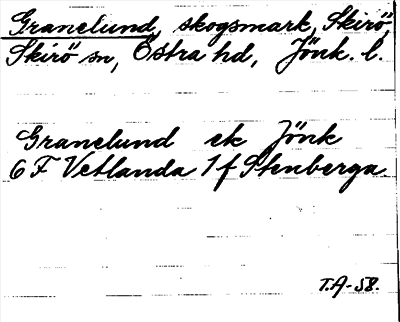 Granelund, skogsmark, Skirö,
Skirö sn, Östra hd, Jönk. l.
Granelund ek Jönk
6 F Vetlanda 1 f Stenberga.
T.A-58.